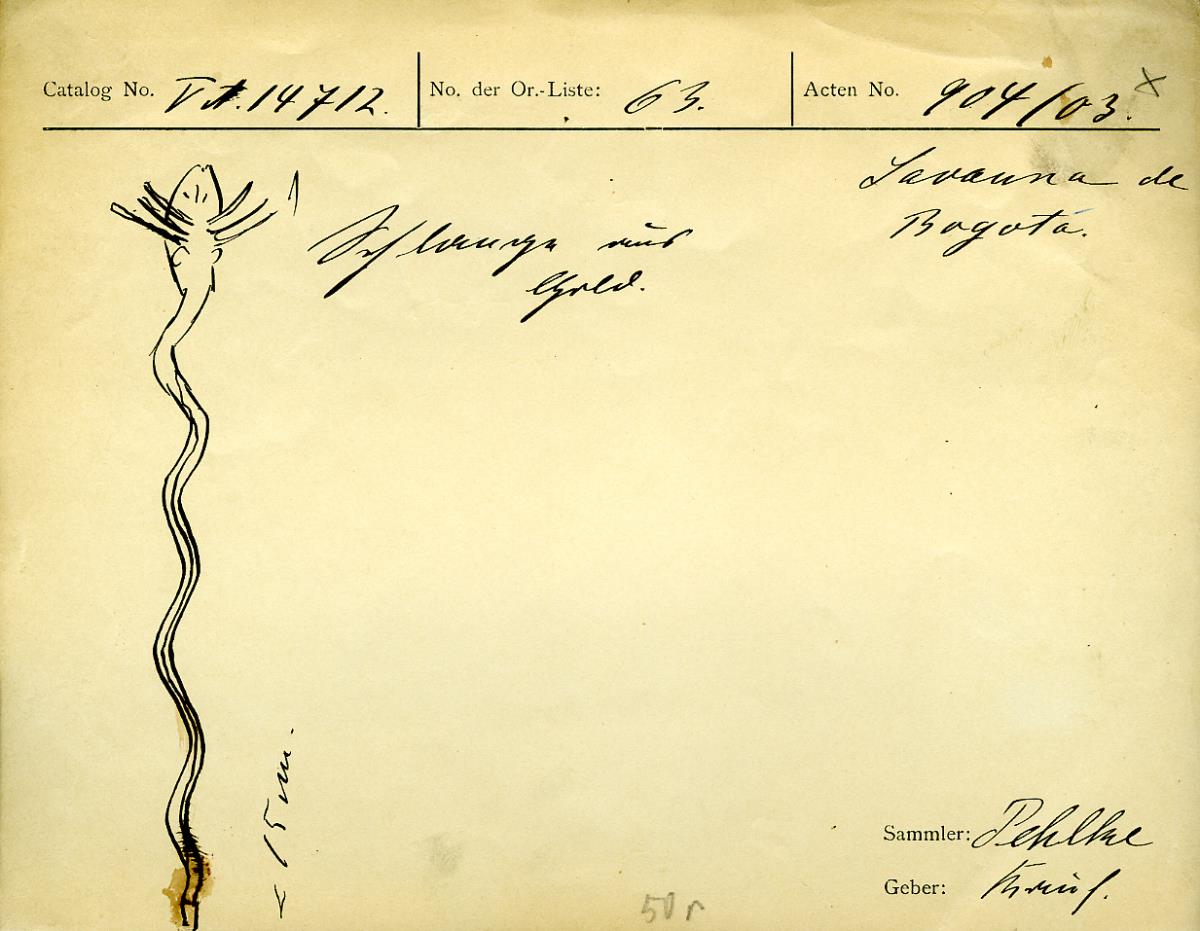 Catalog No. VA. 14712.
No. der Or.-Liste: 63.
Acten No. 904/03. x
Savanna de
Bogotá.
Schlange aus
Gold.
15 cm.
Sammler: Pehlke
Geber: Kauf.
50